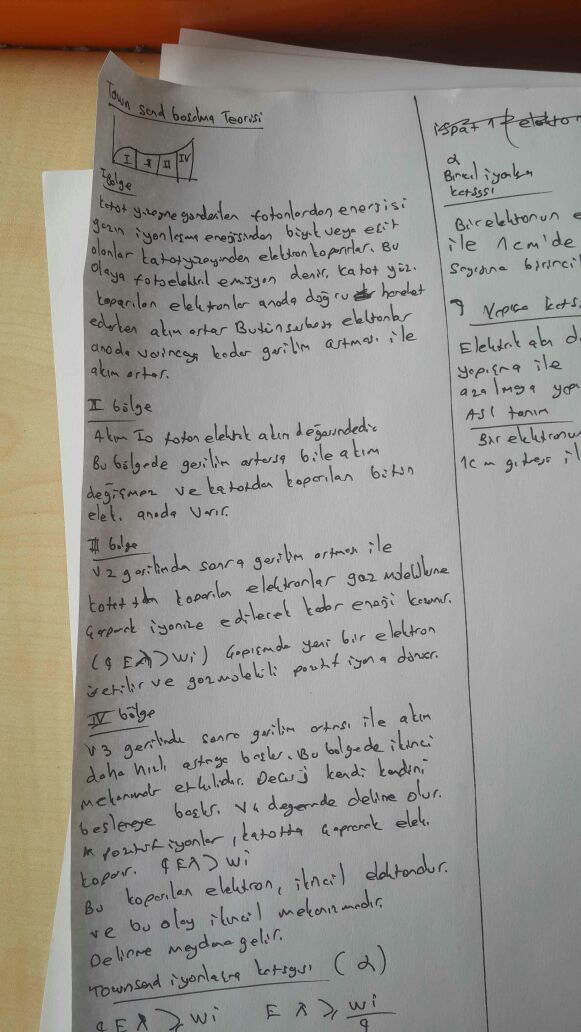 Town send boşalma Teorisi
I II III IV
I Bölge
katot yüzeyine gönderilen fotonlardan enerjisi
gazın iyonlaşma enerjisinden büyük veya eşit
olanlar katot yüzeyinden elektron koparırlar. Bu
olaya fotoelektrik emisyon denir. katot yüz.
koparılan elektronlar anoda doğru hareket
ederken akım artar Bütün serbest elektronlar
anoda varıncaya kadar gerilim artması ile
akım artar.
II bölge
Akım Io foton elektrik akım değerindedir
Bu bölgede gerilim artarsa bile akım
değişmez ve katotdan koparılan bütün
elek. anoda varır.
III bölge
V2 geriliminden sonra gerilim artması ile
katottan koparılan elektronlar gaz moleküllerine
çarparak iyonize edilecek kadar enerji kazanır.
(qEλ>Wi) Çarpışmada yeni bir elektron
üretilir ve gaz molekülü pozitif iyona döner.
IV bölge
V3 geriliminden sonra gerilim artması ile akım
daha hızlı artmaya başlar. Bu bölgede ikinci
mekanizmalar etkilidir. Deşarj kendi kendini
beslemeye başlar. V4 değerinde delinme olur.
pozitif iyonlar, katotta çarparak elek.
koparır. qEλ>Wi
Bu koparılan elektron, ikincil elektrondur.
ve bu olay ikincil mekanizmadır.
Delinme meydana gelir.
Townsend iyonlaşma katsayısı (α)
qEλ≥Wi Eλ≥Wi/q
ispat 1 elektron
α
Birincil iyonlaşma
katsayısı
Bir elektronun
ile 1cm'de
sayısına birincil
η Yapışma kats.
Elektrik alan
yapışma ile
azalmaya
Asıl tanım
Bir elektronun
1cm gitmesi